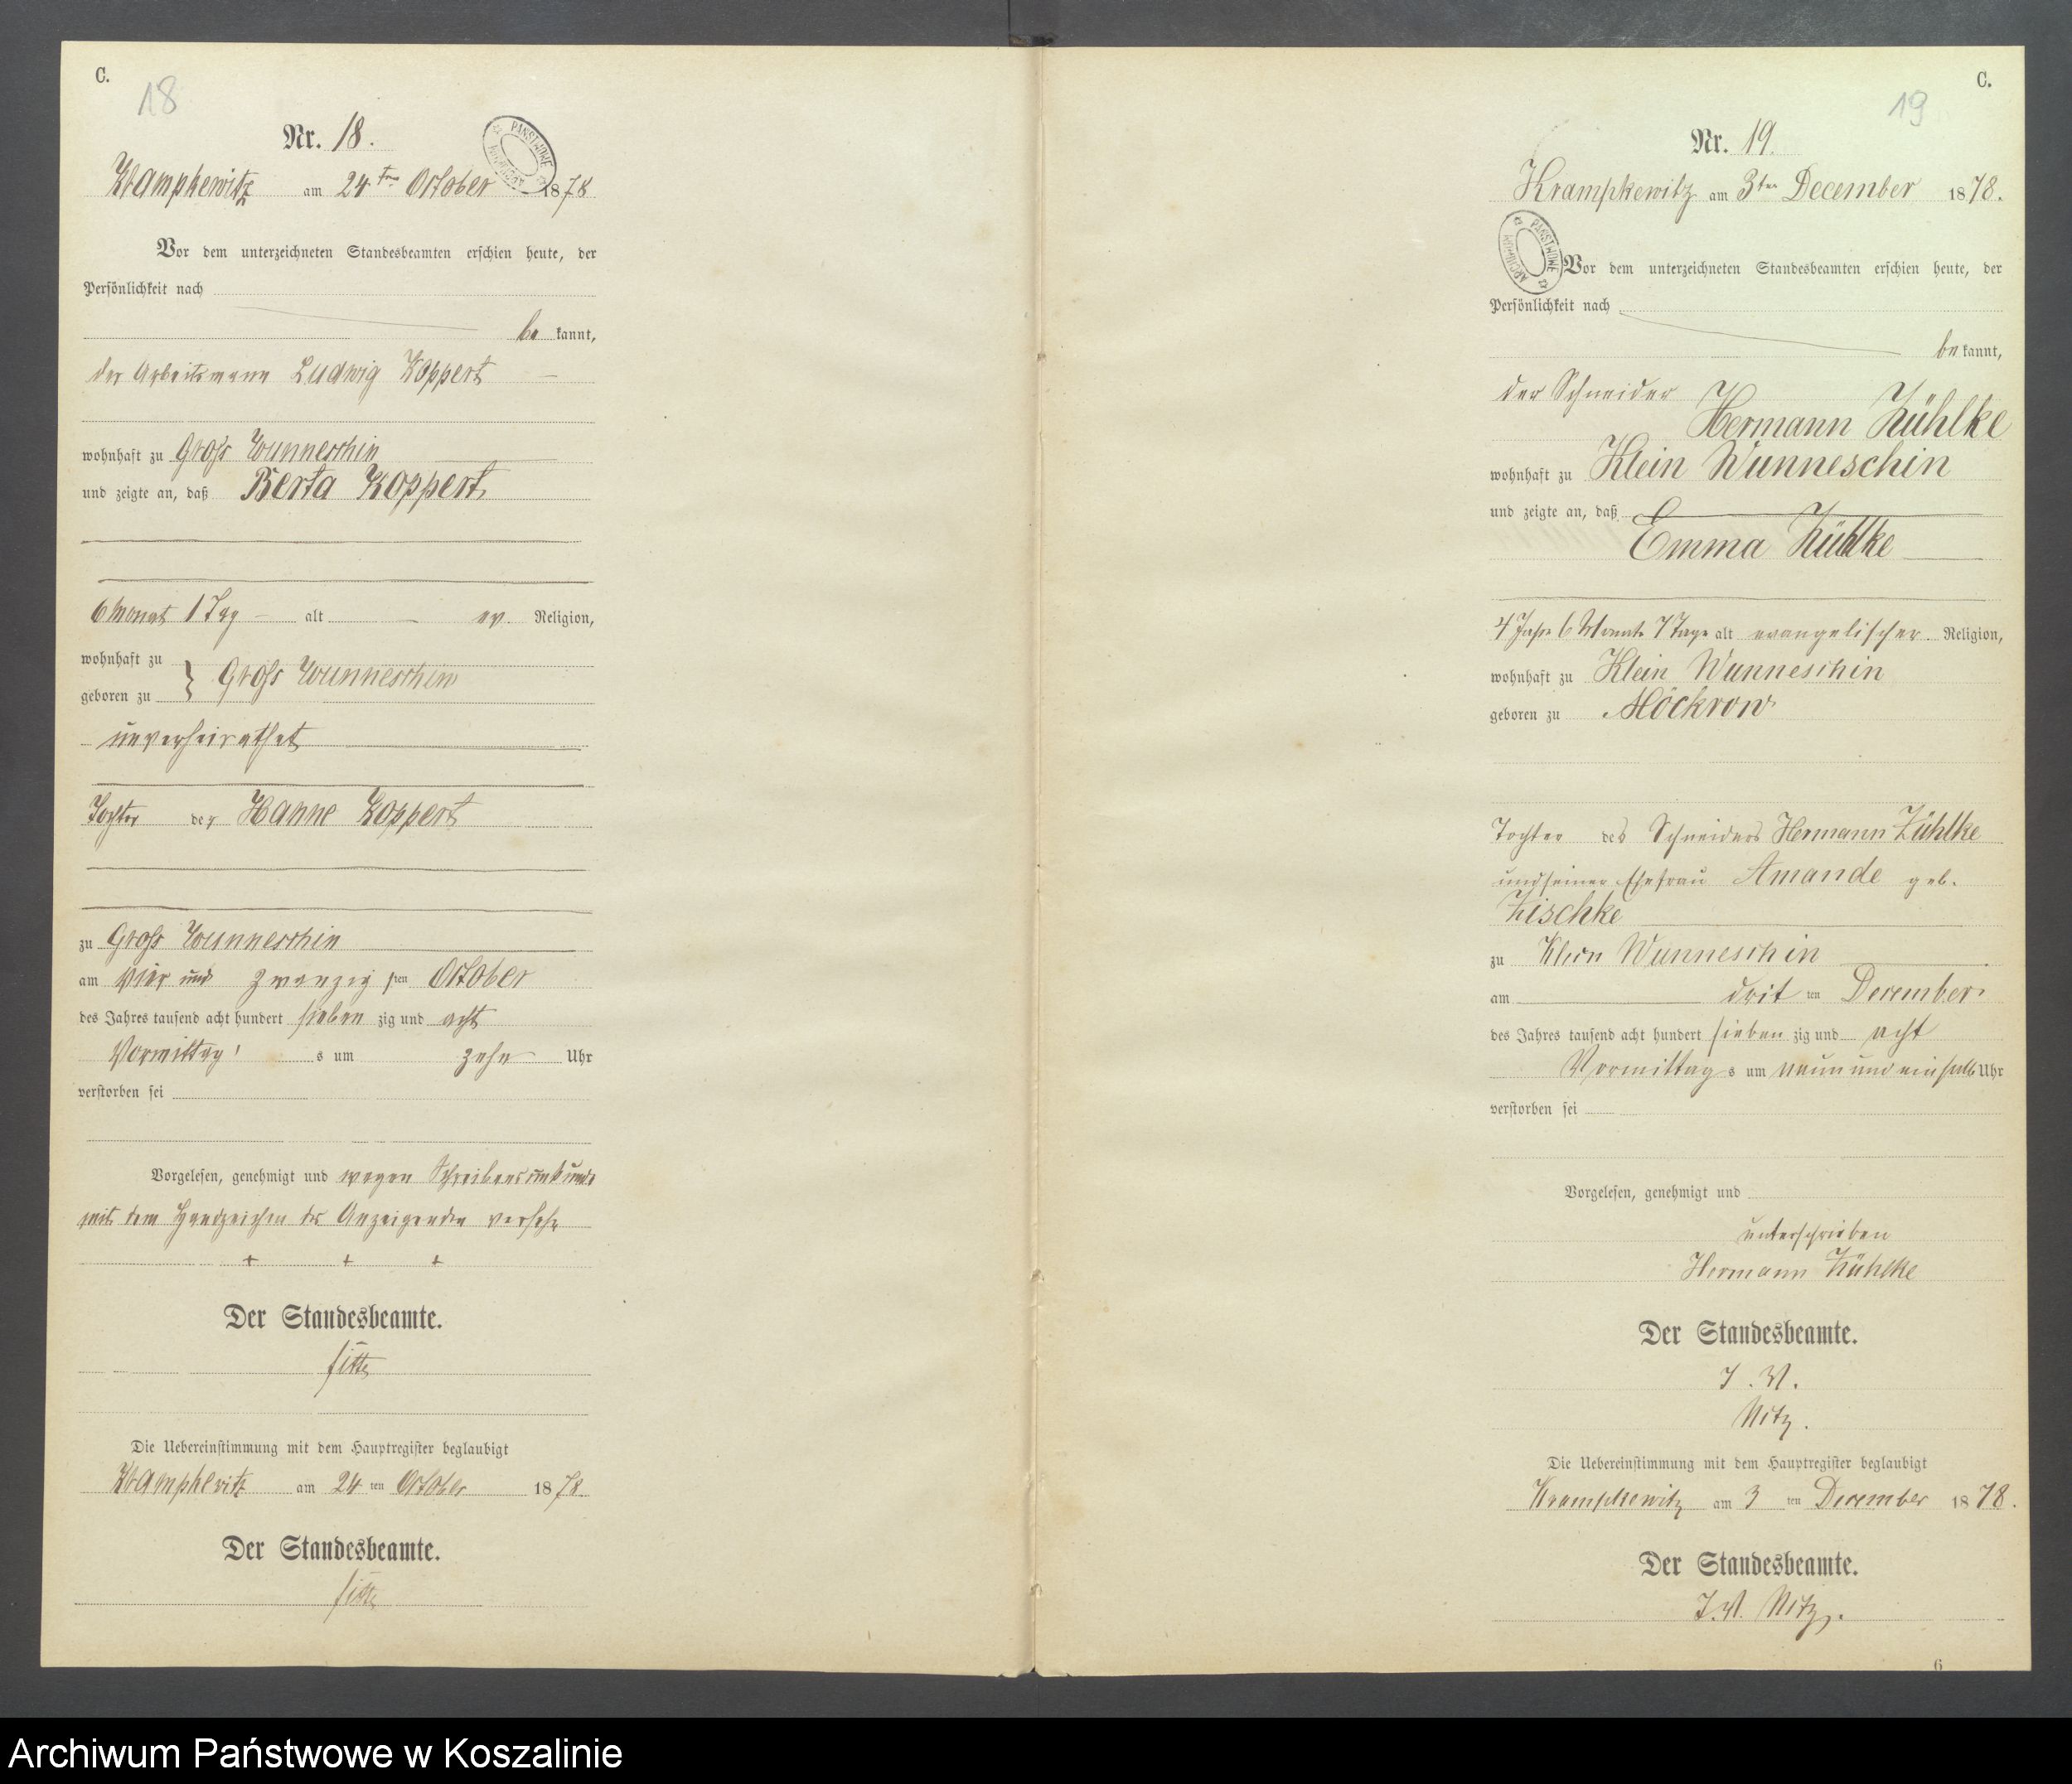 C.
18
Nr. 18.
PAŃSTWOWE ARCHIWUM
Krampkewitz am 24ten October 1878
Vor dem unterzeichneten Standesbeamten erschien heute, der
Persönlichkeit nach
be kannt,
der Arbeitsmann Ludwig Koppert
wohnhaft zu Gross Wunneschin
und zeigte an, daß Berta Koppert
6 Monat 1 Tag alt ev. Religion,
wohnhaft zu
geboren zu } Gross Wunneschin
unverheirathet
Tochter der Hanne Koppert
zu Gross Wunneschin
am vier und zwanzig sten October
des Jahres tausend acht hundert sieben zig und acht
Vormittag s um zehn Uhr
verstorben sei
Vorgelesen, genehmigt und wegen Schreibensunkunde
mit dem Handzeichen des Anzeigenden versehn
+ + +
Der Standesbeamte.
Die Uebereinstimmung mit dem Hauptregister beglaubigt
Krampkewitz am 24 ten October 1878
Der Standesbeamte.
C.
19
Nr. 19.
Krampkewitz am 3ten December 1878.
PAŃSTWOWE ARCHIWUM
Vor dem unterzeichneten Standesbeamten erschien heute, der
Persönlichkeit nach
be kannt,
der Schneider
Hermann Zühlke
wohnhaft zu Klein Wunneschin
und zeigte an, daß
Emma Zühlke
4 Jahr 6 Monate 7 Tage alt evangelischer Religion,
wohnhaft zu Klein Wunneschin
geboren zu Möckrow
Tochter des Schneiders Hermann Zühlke
und seiner Ehefrau Amande geb.
Zischke
zu Klein Wunneschin
am drit ten December
des Jahres tausend acht hundert sieben zig und acht
Vormittag s um neun und ein halb Uhr
verstorben sei
Vorgelesen, genehmigt und
unterschrieben
Hermann Zühlke
Der Standesbeamte.
I. V.
Nitz.
Die Uebereinstimmung mit dem Hauptregister beglaubigt
Krampkewitz am 3 ten December 1878.
Der Standesbeamte.
I. V. Nitz.
6
Archiwum Państwowe w Koszalinie